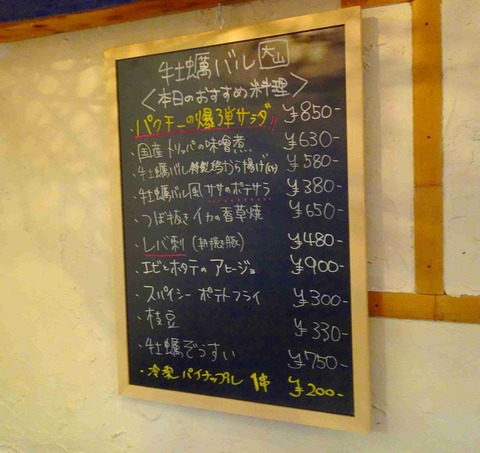 牡蠣バル 大山
＜本日のおすすめ料理＞
・パクチーの爆弾サラダ!! ¥850-
・国産トリッパの味噌煮 ¥630-
・牡蠣バル特製鶏から揚げ ¥580-
・牡蠣バル風ササのポテサラ ¥380-
・つぼ抜きイカの香草焼 ¥650-
・レバ刺 ¥480-
・エビとホタテのアヒージョ ¥900-
・スパイシーポテトフライ ¥300-
・枝豆 ¥330-
・牡蠣ぞうすい ¥750-
・冷製パイナップル 1串 ¥200-